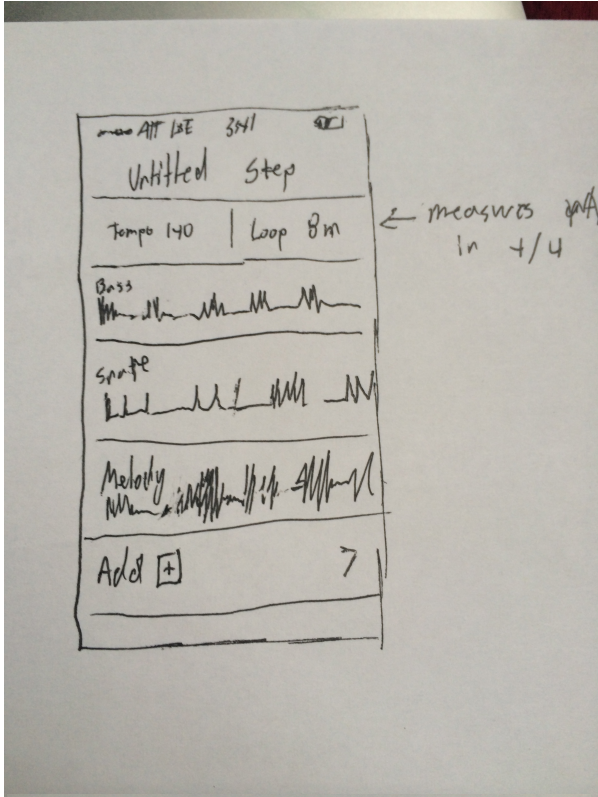 ATT LTE 3:41
Untitled Step
Tempo 140 | Loop 8m
← measures
in 4/4
Bass
Snare
Melody
Add +
>